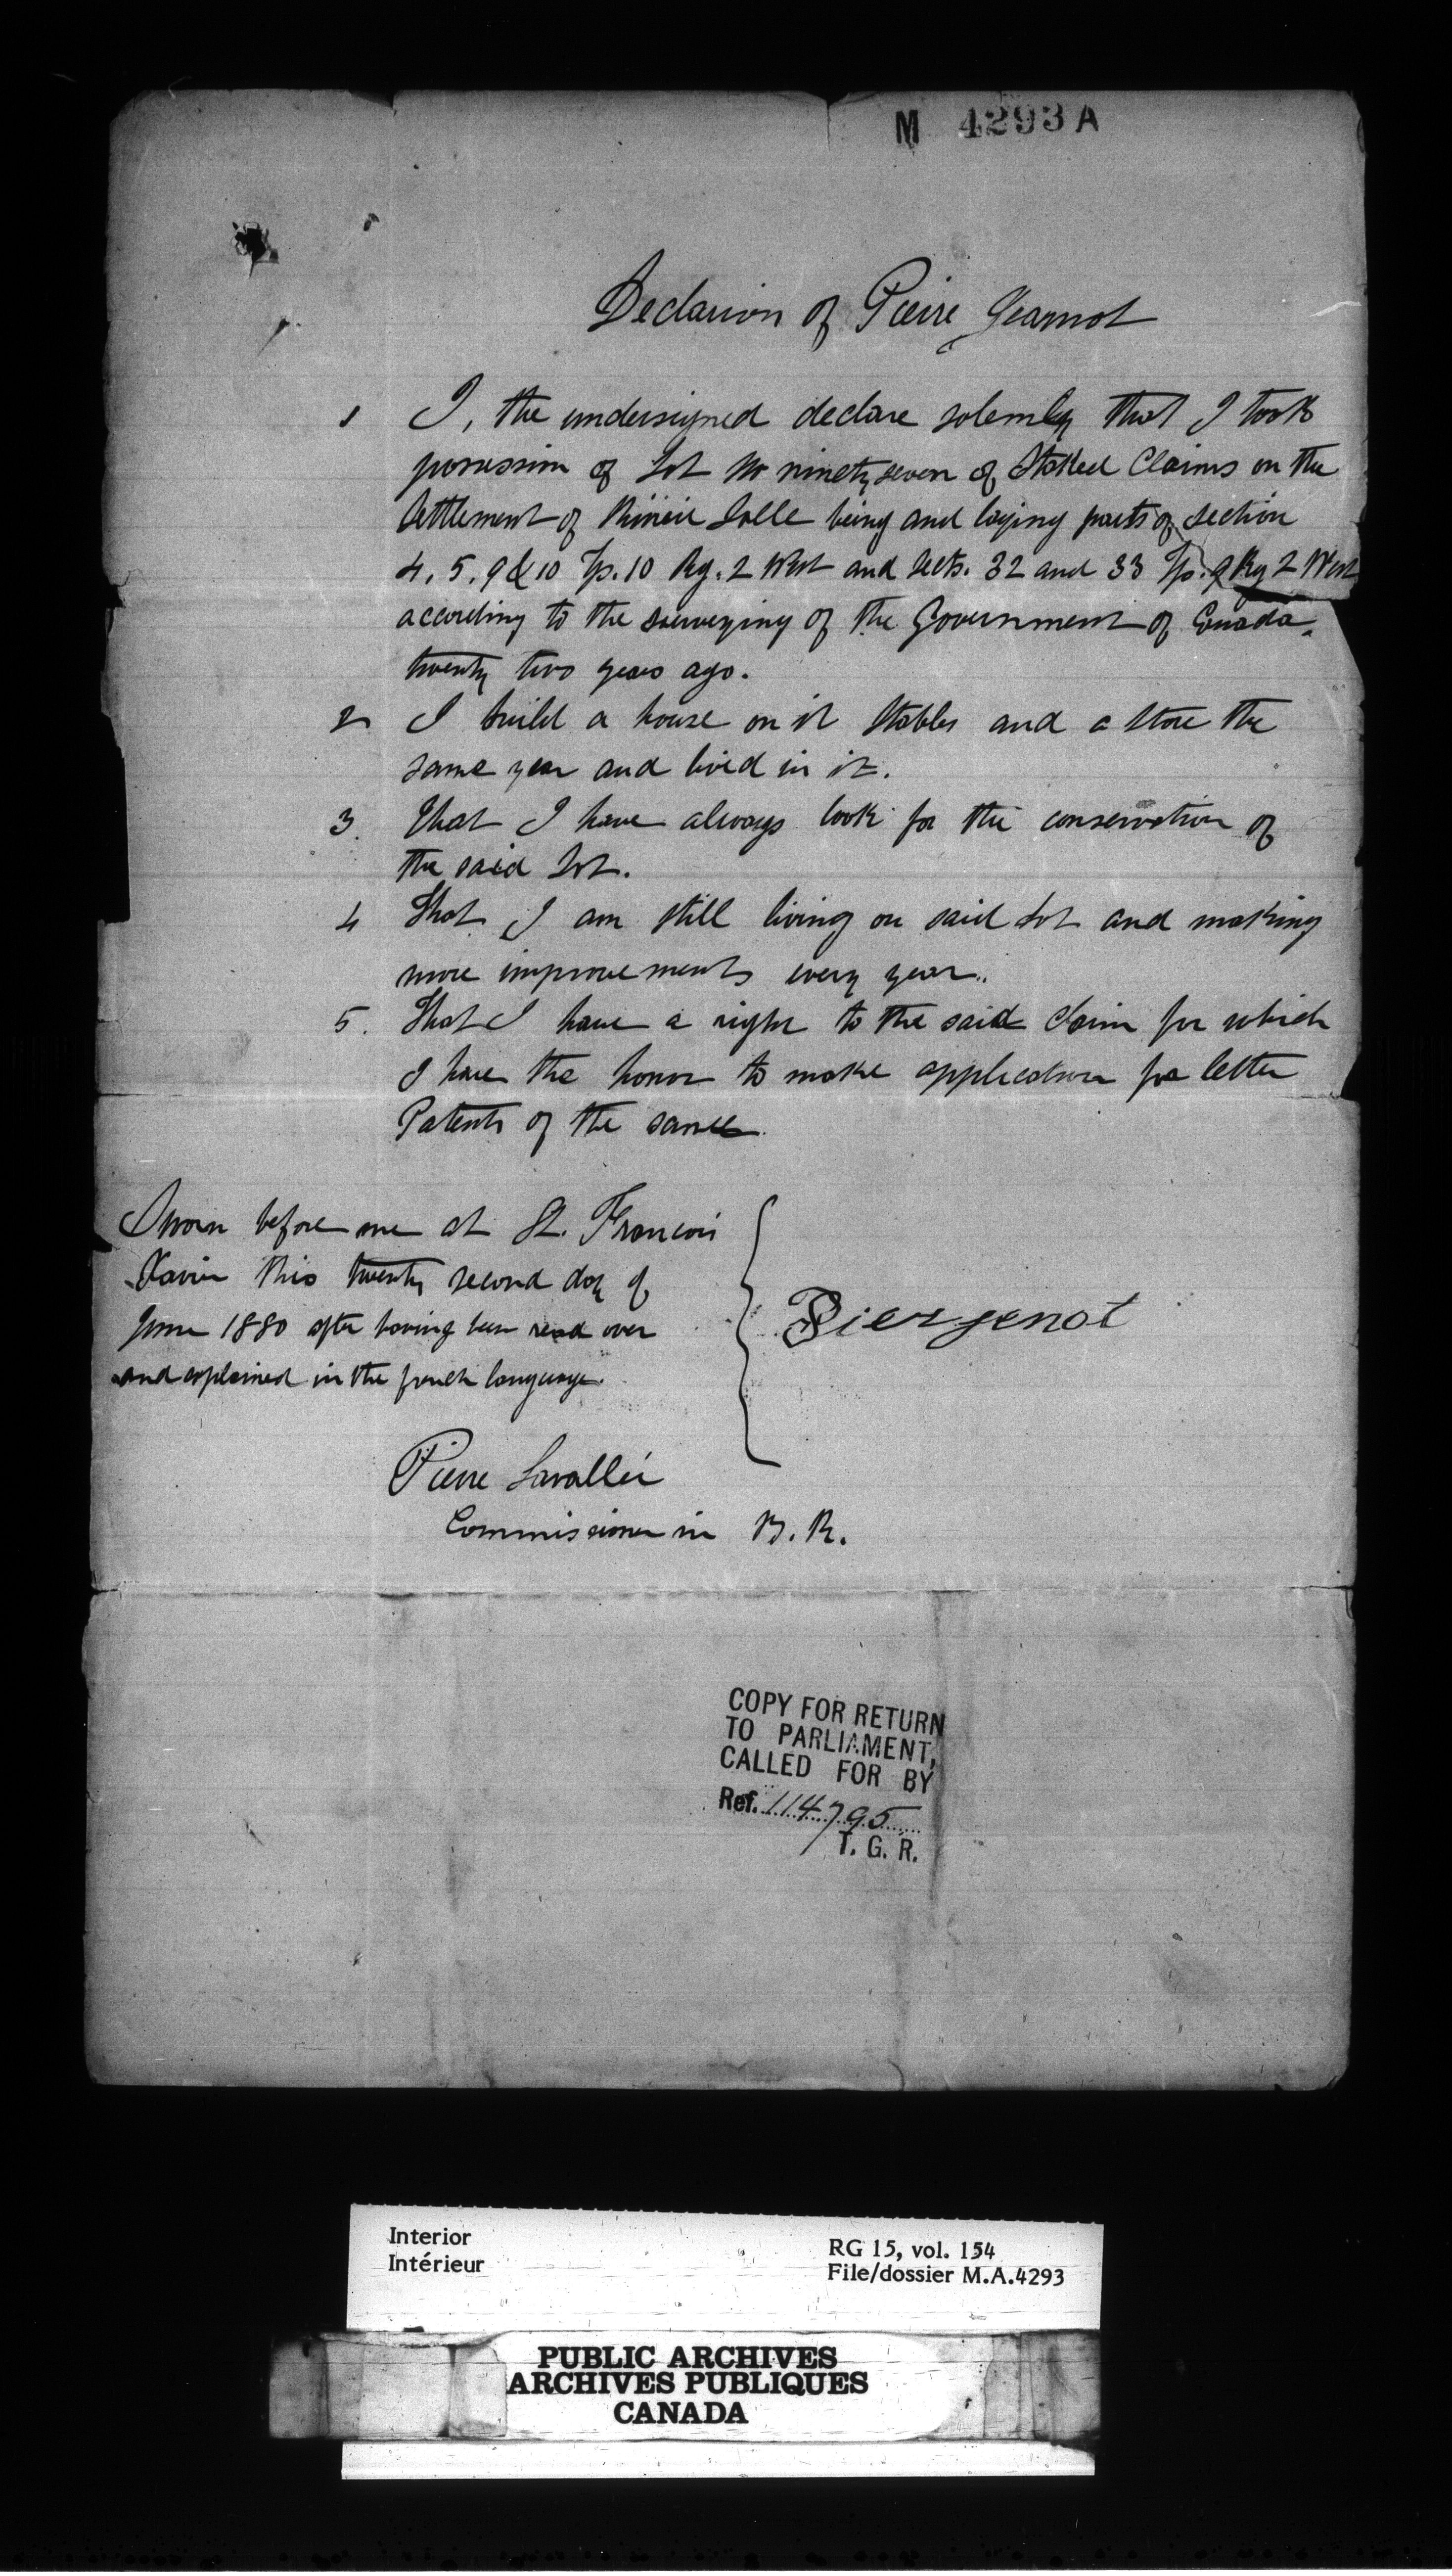 M 4293 A
Declarion of Pierre Jeannot
1 I, the undersigned declare solemly that I took
possession of Lot No ninety seven of Staked Claims on the
Settlement of Rivière Salle being and laying parts of section
4, 5, 9 & 10 Tp. 10 Rg. 2 West and Sects. 32 and 33 Tp. 9 Rg 2 West
according to the surveying of the Government of Canada,
twenty two years ago.
2 I build a house on it stables and a store the
same year and lived in it.
3. That I have always look for the conservation of
the said Lot.
4 That I am still living on said Lot and making
more improvements every year.
5. That I have a right to the said claim for which
I have the honor to make application for letter
Patents of the same
Sworn before me at St. Francois
Xavier this twenty second day of
June 1880 after having been read over
and explained in the french language.
Pier jenot
Pierre Lavallée
Commissioner in B. R.
COPY FOR RETURN
TO PARLIAMENT,
CALLED FOR BY
Ref. 114795
T. G. R.
Interior
Intérieur
RG 15, vol. 154
File/dossier M.A.4293
PUBLIC ARCHIVES
ARCHIVES PUBLIQUES
CANADA